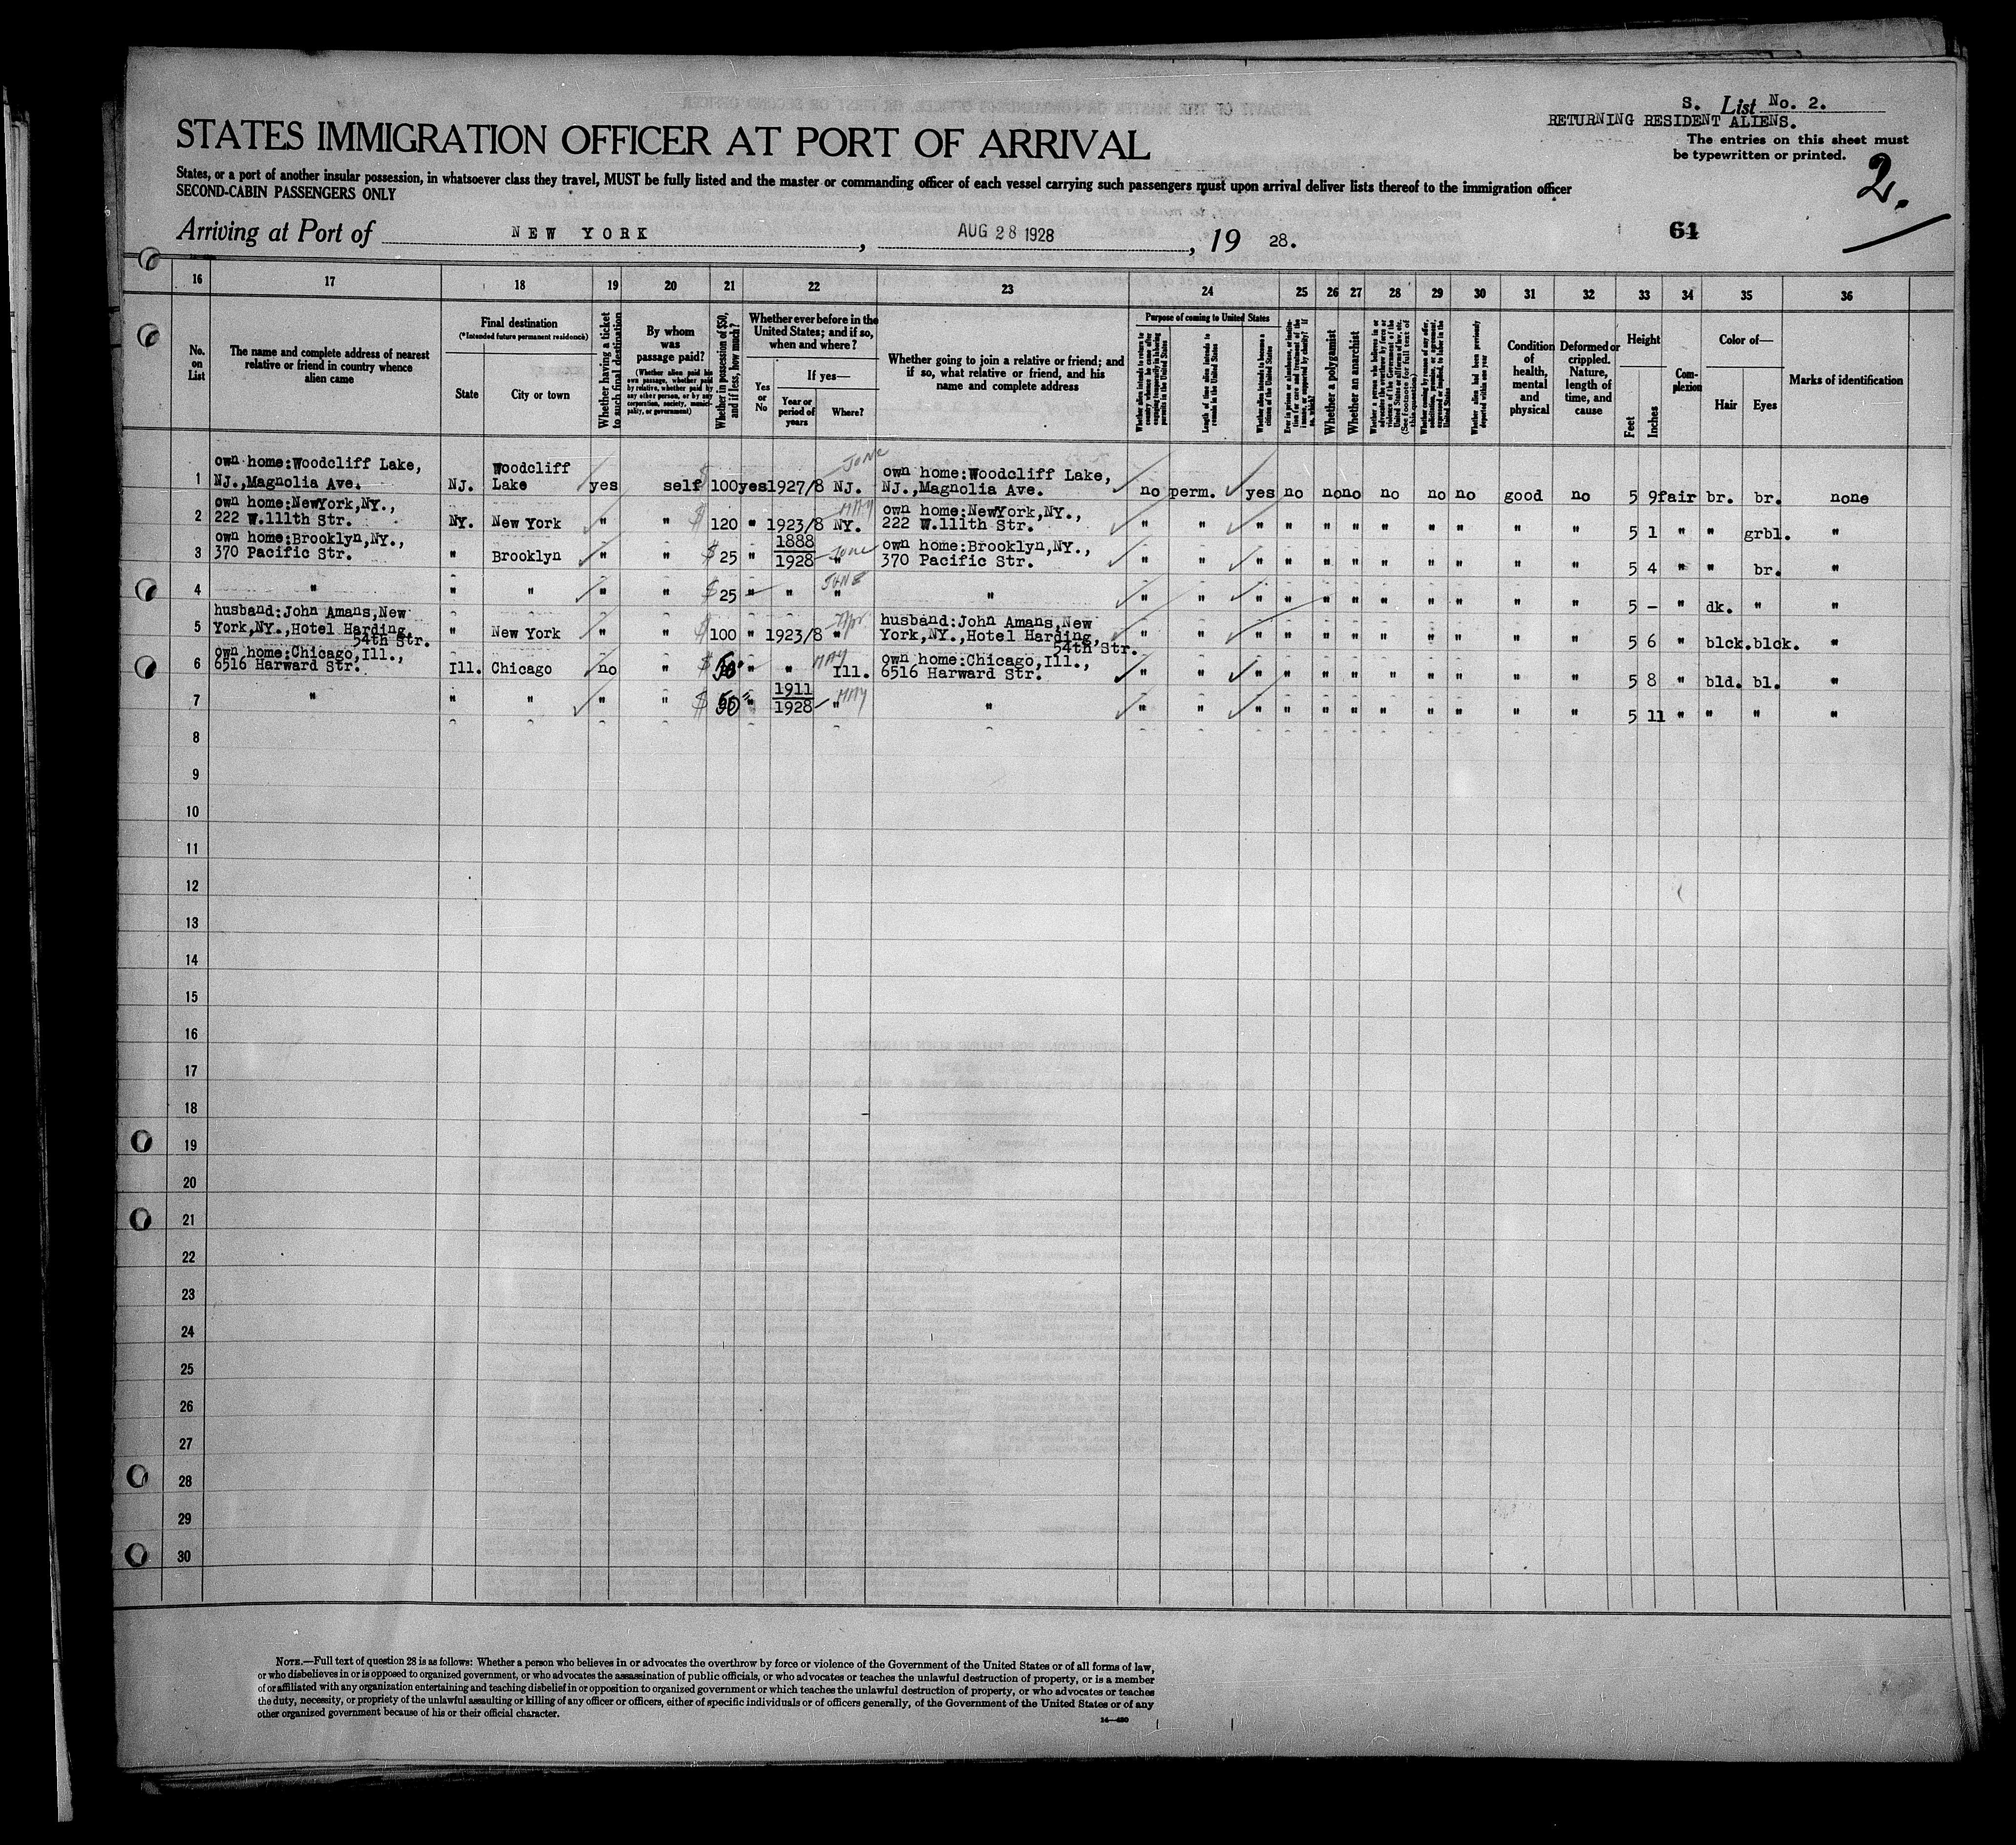 S. List No. 2.
RETURNING RESIDENT ALIENS.
The entries on this sheet must
be typewritten or printed.
2.
STATES IMMIGRATION OFFICER AT PORT OF ARRIVAL
States, or a port of another insular possession, in whatsoever class they travel, MUST be fully listed and the master or commanding officer of each vessel carrying such passengers must upon arrival deliver lists thereof to the immigration officer
SECOND-CABIN PASSENGERS ONLY
Arriving at Port of NEW YORK, AUG 28 1928, 19 28.
64
16 17 18 19 20 21 22 23 24 25 26 27 28 29 30 31 32 33 34 35 36
No. on List
The name and complete address of nearest relative or friend in country whence alien came
Final destination
(*Intended future permanent residence)
State
City or town
Whether having a ticket to such final destination
By whom was passage paid?
(Whether alien paid his own passage, whether paid by relative, whether paid by any other person, or by any corporation, society, municipality, or government)
Whether in possession of $50, and if less, how much?
Whether ever before in the United States; and if so, when and where?
Yes or No
If yes—
Year or period of years
Where?
Whether going to join a relative or friend; and if so, what relative or friend, and his name and complete address
Purpose of coming to United States
Whether alien intends to return to country whence he came after engaging temporarily in laboring pursuits in the United States
Length of time alien intends to remain in the United States
Whether alien intends to become a citizen of the United States
Whether a polygamist
Whether an anarchist
Whether alien had been previously deported within one year
Condition of health, mental and physical
Deformed or crippled. Nature, length of time, and cause
Height
Feet
Inches
Complexion
Color of—
Hair
Eyes
Marks of identification
1 own home:Woodcliff Lake, NJ.,Magnolia Ave. NJ. Woodcliff Lake yes self $ 100 yes 1927/8 June NJ. own home:Woodcliff Lake, NJ.,Magnolia Ave. no perm. yes no no no no no no good no 5 9 fair br. br. none
2 own home:NewYork,NY., 222 W.111th Str. NY. New York " " $ 120 " 1923/8 May NY. own home:NewYork,NY., 222 W.111th Str. " " " " " " " " " " " 5 1 " " grbl. "
3 own home:Brooklyn,NY., 370 Pacific Str. " Brooklyn " " $ 25 " 1888 1928 June " own home:Brooklyn,NY., 370 Pacific Str. " " " " " " " " " " " 5 4 " " br. "
4 " " " " " $ 25 " " June " " " " " " " " " " " " " 5 - " dk. " "
5 husband:John Amans,New York,NY.,Hotel Harding, 54th Str. " New York " " $ 100 " 1923/8 Apr. " husband:John Amans,New York,NY.,Hotel Harding, 54th Str. " " " " " " " " " " " 5 6 " blck. blck. "
6 own home:Chicago,Ill., 6516 Harward Str. Ill. Chicago no " $ 50 " " May Ill. own home:Chicago,Ill., 6516 Harward Str. " " " " " " " " " " " 5 8 " bld. bl. "
7 " " " " " $ 50 " 1911 1928 May " " " " " " " " " " " " " " 5 11 " " " "
8
9
10
11
12
13
14
15
16
17
18
19
20
21
22
23
24
25
26
27
28
29
30
NOTE.—Full text of question 28 is as follows: Whether a person who believes in or advocates the overthrow by force or violence of the Government of the United States or of all forms of law,
or who disbelieves in or is opposed to organized government, or who advocates the assassination of public officials, or who advocates or teaches the unlawful destruction of property, or is a member
of or affiliated with any organization entertaining and teaching disbelief in or opposition to organized government or which teaches the unlawful destruction of property, or who advocates or teaches
the duty, necessity, or propriety of the unlawful assaulting or killing of any officer or officers, either of specific individuals or of officers generally, of the Government of the United States or of any
other organized government because of his or their official character.
14—430